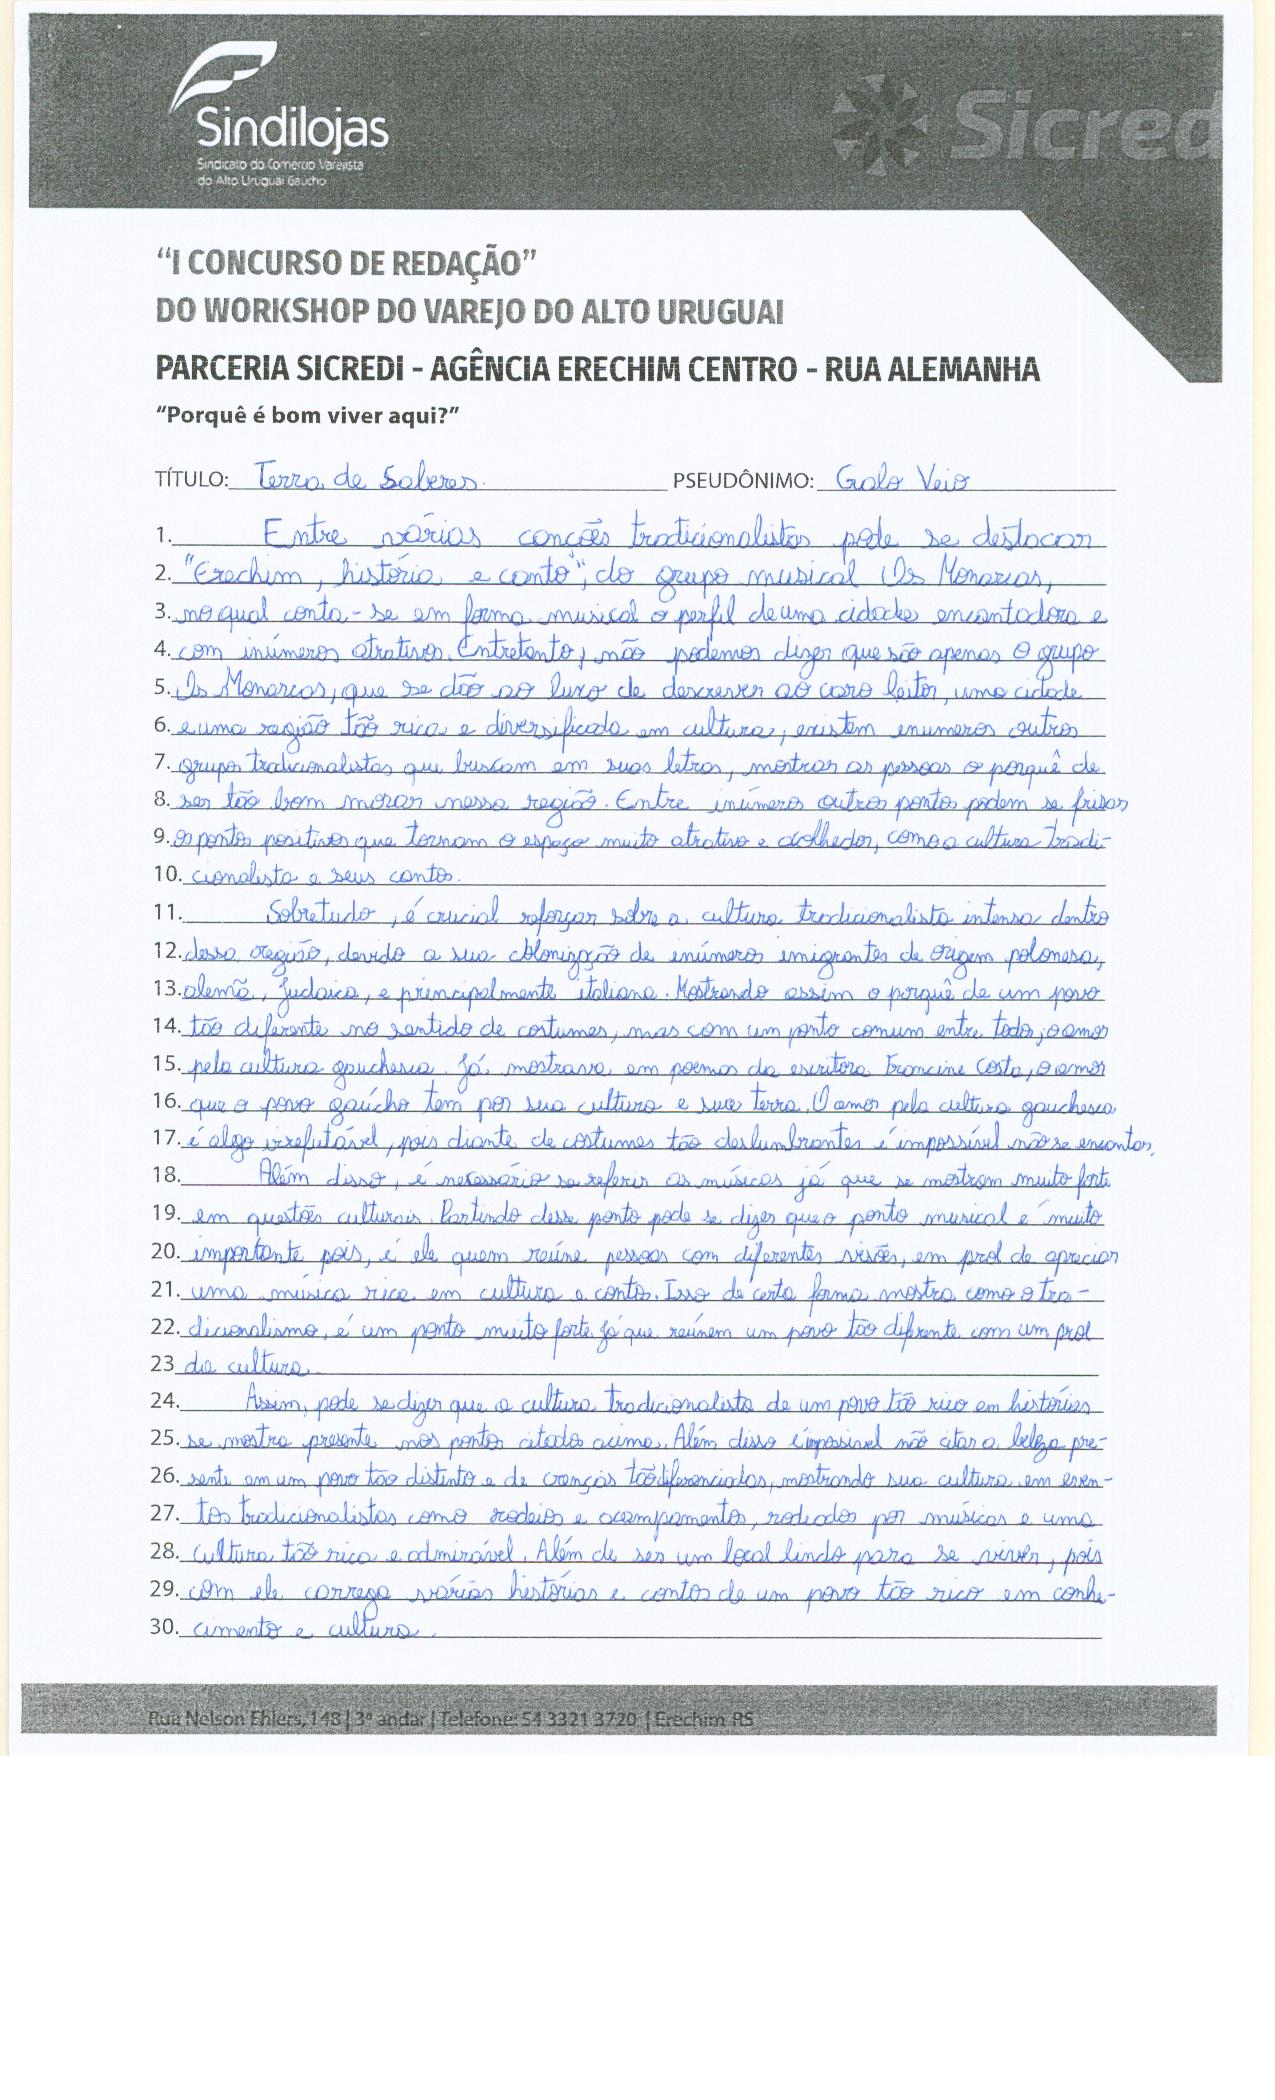 Sindilojas
Sindicato do Comercio Varejista
do Alto Uruguai Gaucho
Sicred
“I CONCURSO DE REDAÇÃO”
DO WORKSHOP DO VAREJO DO ALTO URUGUAI
PARCERIA SICREDI - AGÊNCIA ERECHIM CENTRO - RUA ALEMANHA
“Porquê é bom viver aqui?”
TÍTULO: Terra de Saberes. PSEUDÔNIMO: Galo Veio
1. Entre várias canções tradicionalistas pode se destacar
2. "Erechim, história e canto", do grupo musical Os Monarcas,
3. no qual conta-se em forma musical o perfil de uma cidade encantadora e
4. com inúmeros atrativos. Entretanto, não podemos dizer que são apenas o grupo
5. Os Monarcas, que se dão ao luxo de descrever ao caro leitor, uma cidade
6. e uma região tão rica e diversificada em cultura, existem enumeros outros
7. grupos tradicionalistas que buscam em suas letras, mostrar as pessoas o porquê de
8. ser tão bom morar nessa região. Entre inúmeros outros pontos podem se frisar
9. os pontos positivos que tornam o espaço muito atrativo e acolhedor, como a cultura tradi-
10. cionalista e seus contos.
11. Sobretudo, é crucial reforçar sobre a cultura tradicionalista intensa dentro
12. dessa região, devido a sua colonização de inúmeros imigrantes de origem polonesa,
13. alemã, Judaica, e principalmente italiana. Mostrando assim o porquê de um povo
14. tão diferente no sentido de costumes, mas com um ponto comum entre todos, o amor
15. pela cultura gauchesca. Já mostrava em poemas da escritora Francine Costa, o amor
16. que o povo gaúcho tem por sua cultura e sua terra. O amor pela cultura gauchesca
17. é algo irrefutável, pois diante de costumes tão deslumbrantes é impossível não se encantar.
18. Além disso, é necessário se referir as músicas já que se mostram muito forte
19. em questões culturais. Partindo desse ponto pode se dizer que o ponto musical é muito
20. importante pois, é ele quem reúne pessoas com diferentes visões, em prol de apreciar
21. uma música rica em cultura e contos. Isso de certa forma mostra como o tra-
22. dicionalismo, é um ponto muito forte já que reúnem um povo tão diferente com um prol
23 da cultura.
24. Assim, pode se dizer que a cultura tradicionalista de um povo tão rico em histórias
25. se mostra presente nos pontos citados acima. Além disso é impossível não citar a beleza pre-
26. sente em um povo tão distinto e de crenças tão diferenciadas, mostrando sua cultura em even-
27. tos tradicionalistas como rodeios e acampamentos, rodeados por músicas e uma
28. cultura tão rica e admirável. Além de ser um local lindo para se viver, pois
29. com ele carrega várias histórias e contos de um povo tão rico em conhe-
30. cimento e cultura.
Rua Nelson Ehlers, 148 | 3º andar | Telefone: 54 3321 3720 | Erechim-RS